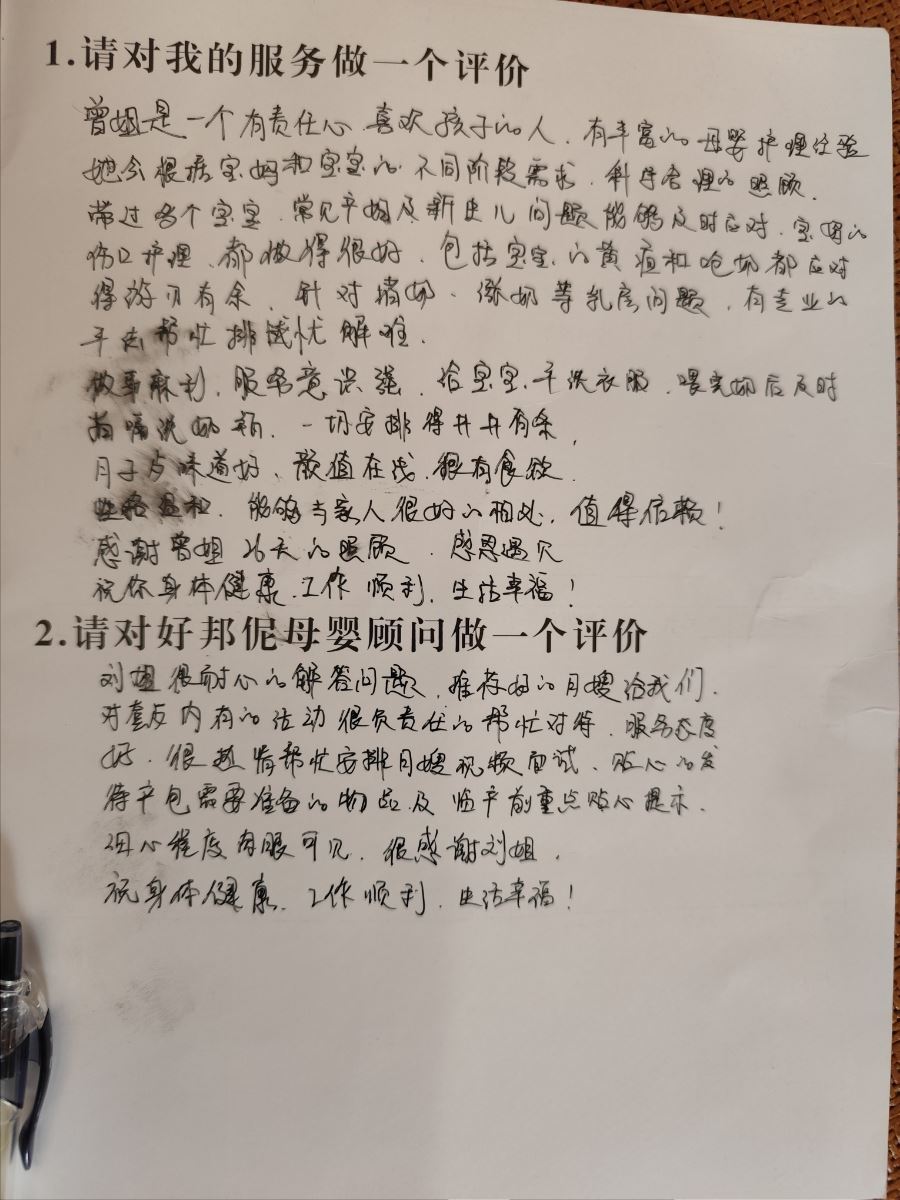 1.请对我的服务做一个评价
曾姐是一个有责任心 喜欢孩子的人，有丰富的母婴护理经验
她会根据宝妈和宝宝的不同阶段需求，科学合理的照顾.
带过多个宝宝，常见产妇及新生儿问题能够及时应对，宝妈的
伤口护理，都做得很好，包括宝宝的黄疸和呛奶都应对
得游刃有余，针对堵奶、涨奶等乳房问题，有专业的
手法帮忙排忧解难.
做事麻利，服务意识强，给宝宝手洗衣服，喂完奶后及时
清洗奶瓶，一切安排得井井有条，
月子餐味道好，颜值在线，很有食欲
性格温和，能够与家人很好的相处，值得信赖！
感谢曾姐26天的照顾，感恩遇见
祝你身体健康、工作顺利，生活幸福！
2.请对好邦伲母婴顾问做一个评价
刘姐很耐心的解答问题，推荐好的月嫂给我们.
对套餐内有的活动很负责任的帮忙对待，服务态度
好，很热情帮忙安排月嫂视频面试，贴心的发
待产包需要准备的物品及临产前重点贴心提示.
细心程度肉眼可见，很感谢刘姐，
祝身体健康、工作顺利，生活幸福！